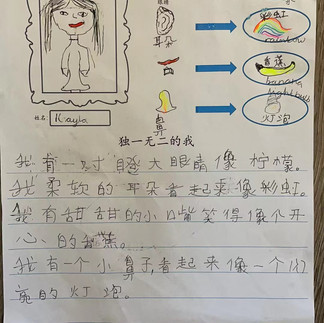 彩虹
rainbow
耳朵
香蕉
banana
lightbulb
鼻
灯泡
姓名:
Kayla
独一无二的我
我有一对大眼睛像柠檬。
我柔软的耳朵看起来像彩虹。
我有甜甜的小口嘴笑得像个开
心的香蕉。
我有一个小鼻子,看起来像一个闪
亮的灯泡。